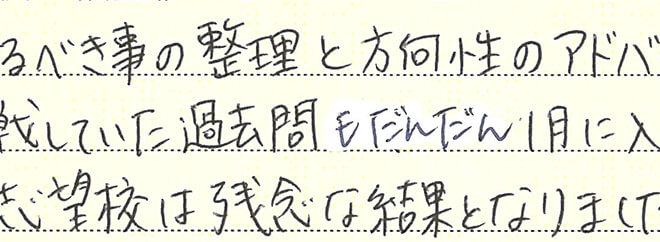 るべき事の整理と方向性のアドバ
戦していた過去問もだんだん1月に入
志望校は残念な結果となりました